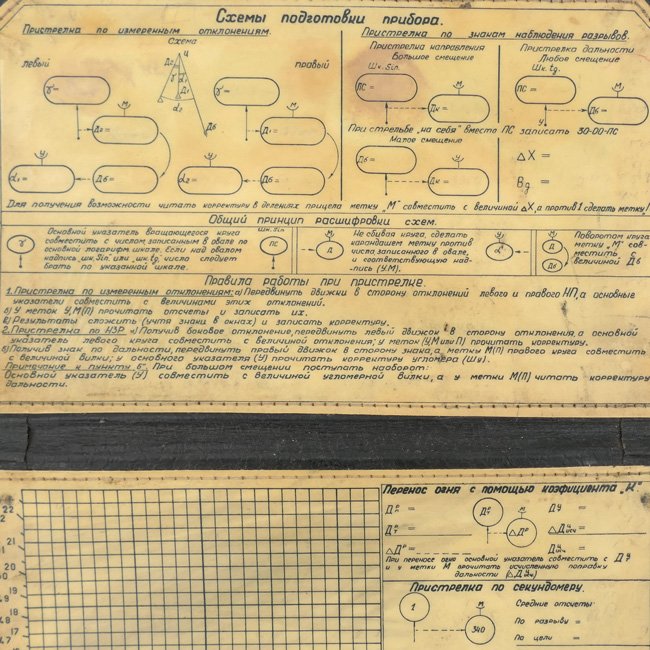 Схемы подготовки прибора.
Пристрелка по измеренным отклонениям.
Схема
левый
правый
γ =
М
Д₂ =
У
α₁ =
Дб =
Ц
Д₂
γ
Д₁
α₂
Дб
γ =
М
Д₁ =
У
α₂ =
Дб =
Пристрелка по знакам наблюдения разрывов.
Пристрелка направления
Большое смещение
Шк. Sin.
ПС =
М
Дк =
Пристрелка дальности
Любое смещение
Шк. tg.
ПС =
У
М
Дб =
При стрельбе „на себя" вместо ПС записать 30-00-ПС
Малое смещение
Дб =
У
Дк =
ΔX =
Bд =
Для получения возможности читать корректуру в делениях прицела метку „М" совместить с величиной ΔX, а против 1 сделать метку!
Общий принцип расшифровки схем.
γ
Основной указатель вращающегося круга
совместить с числом записанным в овале по
основной логарифм. шкале. Если над овалом
надпись „шк. Sin." или „шк. tg", число следует
брать по указанной шкале.
шк. Sin
ПС
М
Д
Не сбивая круга, сделать
карандашем метку против
числа, записанного в овале,
и соответствующую над-
пись (У, М).
У
α
М
Д
Дб
Поворотом круга
метку „М" сов-
местить с
величиной Дб
Правила работы при пристрелке.
1. Пристрелка по измеренным отклонениям: а) Передвинуть движки в сторону отклонений левого и правого НП, а основные
указатели совместить с величинами этих отклонений.
б) У меток У, М(П) прочитать отсчеты и записать их.
в) Результаты сложить (учтя знаки в окнах) и записать корректуру.
2. Пристрелка по НЗР а) Получив боковое отклонение, передвинуть левый движок в сторону отклонения, а основной
указатель левого круга совместить с величиной отклонения; у меток (У, М или П) прочитать корректуру.
б) Получив знак по дальности, передвинуть правый движок в сторону знака, а метку М(П) правого круга совместить
с величиной вилки; у основного указателя (У) прочитать корректуру угломера (Шу).
Примечание к пункту б. При большом смещении поступать наоборот:
Основной указатель (У) совместить с величиной угломерной вилки, а у метки М(П) читать корректуру
дальности.
22
21
20
19
18
17
16
Перенос огня с помощью коэфициента „К".
Д =
Д =
ΔД =
М
ΔД
ДЦ =
ΔД =
ΔД =
При переносе огня основной указатель совместить с ДЦ
и у метки М прочитать исчисленную поправку
дальности
Пристрелка по секундомеру.
1
М
340
Средние отсчеты:
По разрыву =
По цели =